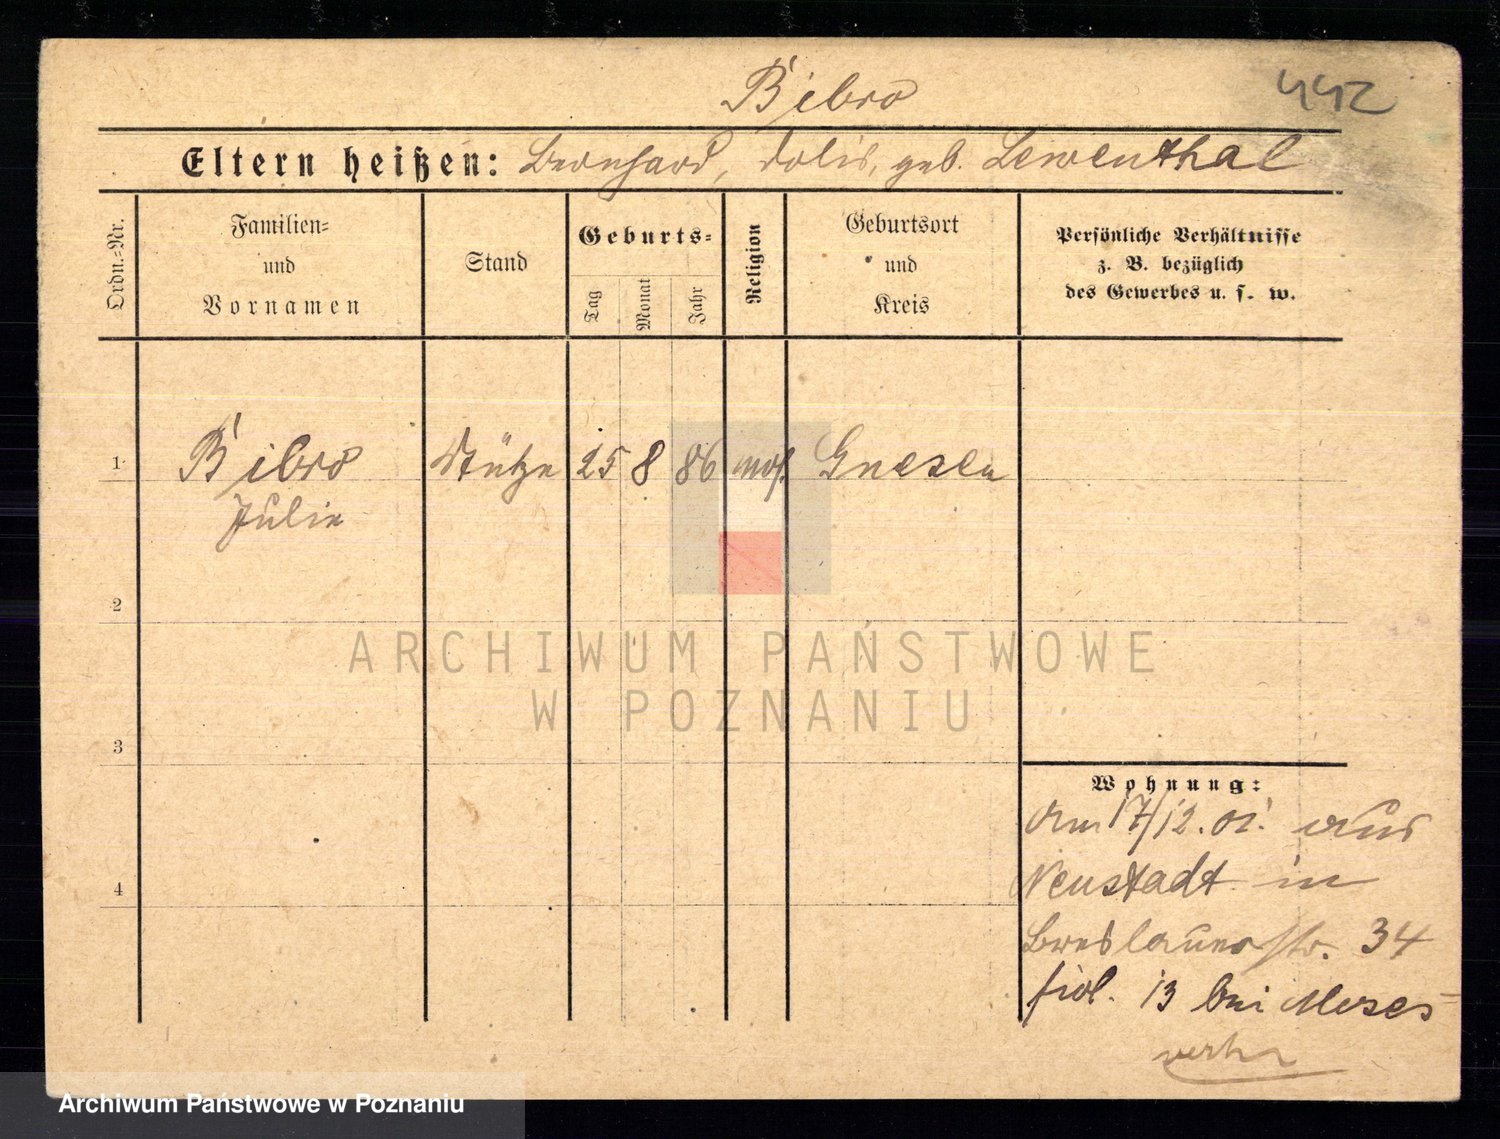 Bibro
442
Eltern heißen: Bernhard, geb. Lewenthal
Ordn.-Nr.
Familien-
und
Vornamen
Stand
Geburts-
Tag
Monat
Jahr
Religion
Geburtsort
und
Kreis
Persönliche Verhältnisse
z. B. bezüglich
des Gewerbes u. s. w.
1
Bibro
Stütze
25
8
86
mos.
Gnesen
Julie
2
3
4
ARCHIWUM PAŃSTWOWE
W POZNANIU
Wohnung:
Am 17/12.01. aus
Neustadt in
Breslauerstr. 34
13 bei Moses
Archiwum Państwowe w Poznaniu